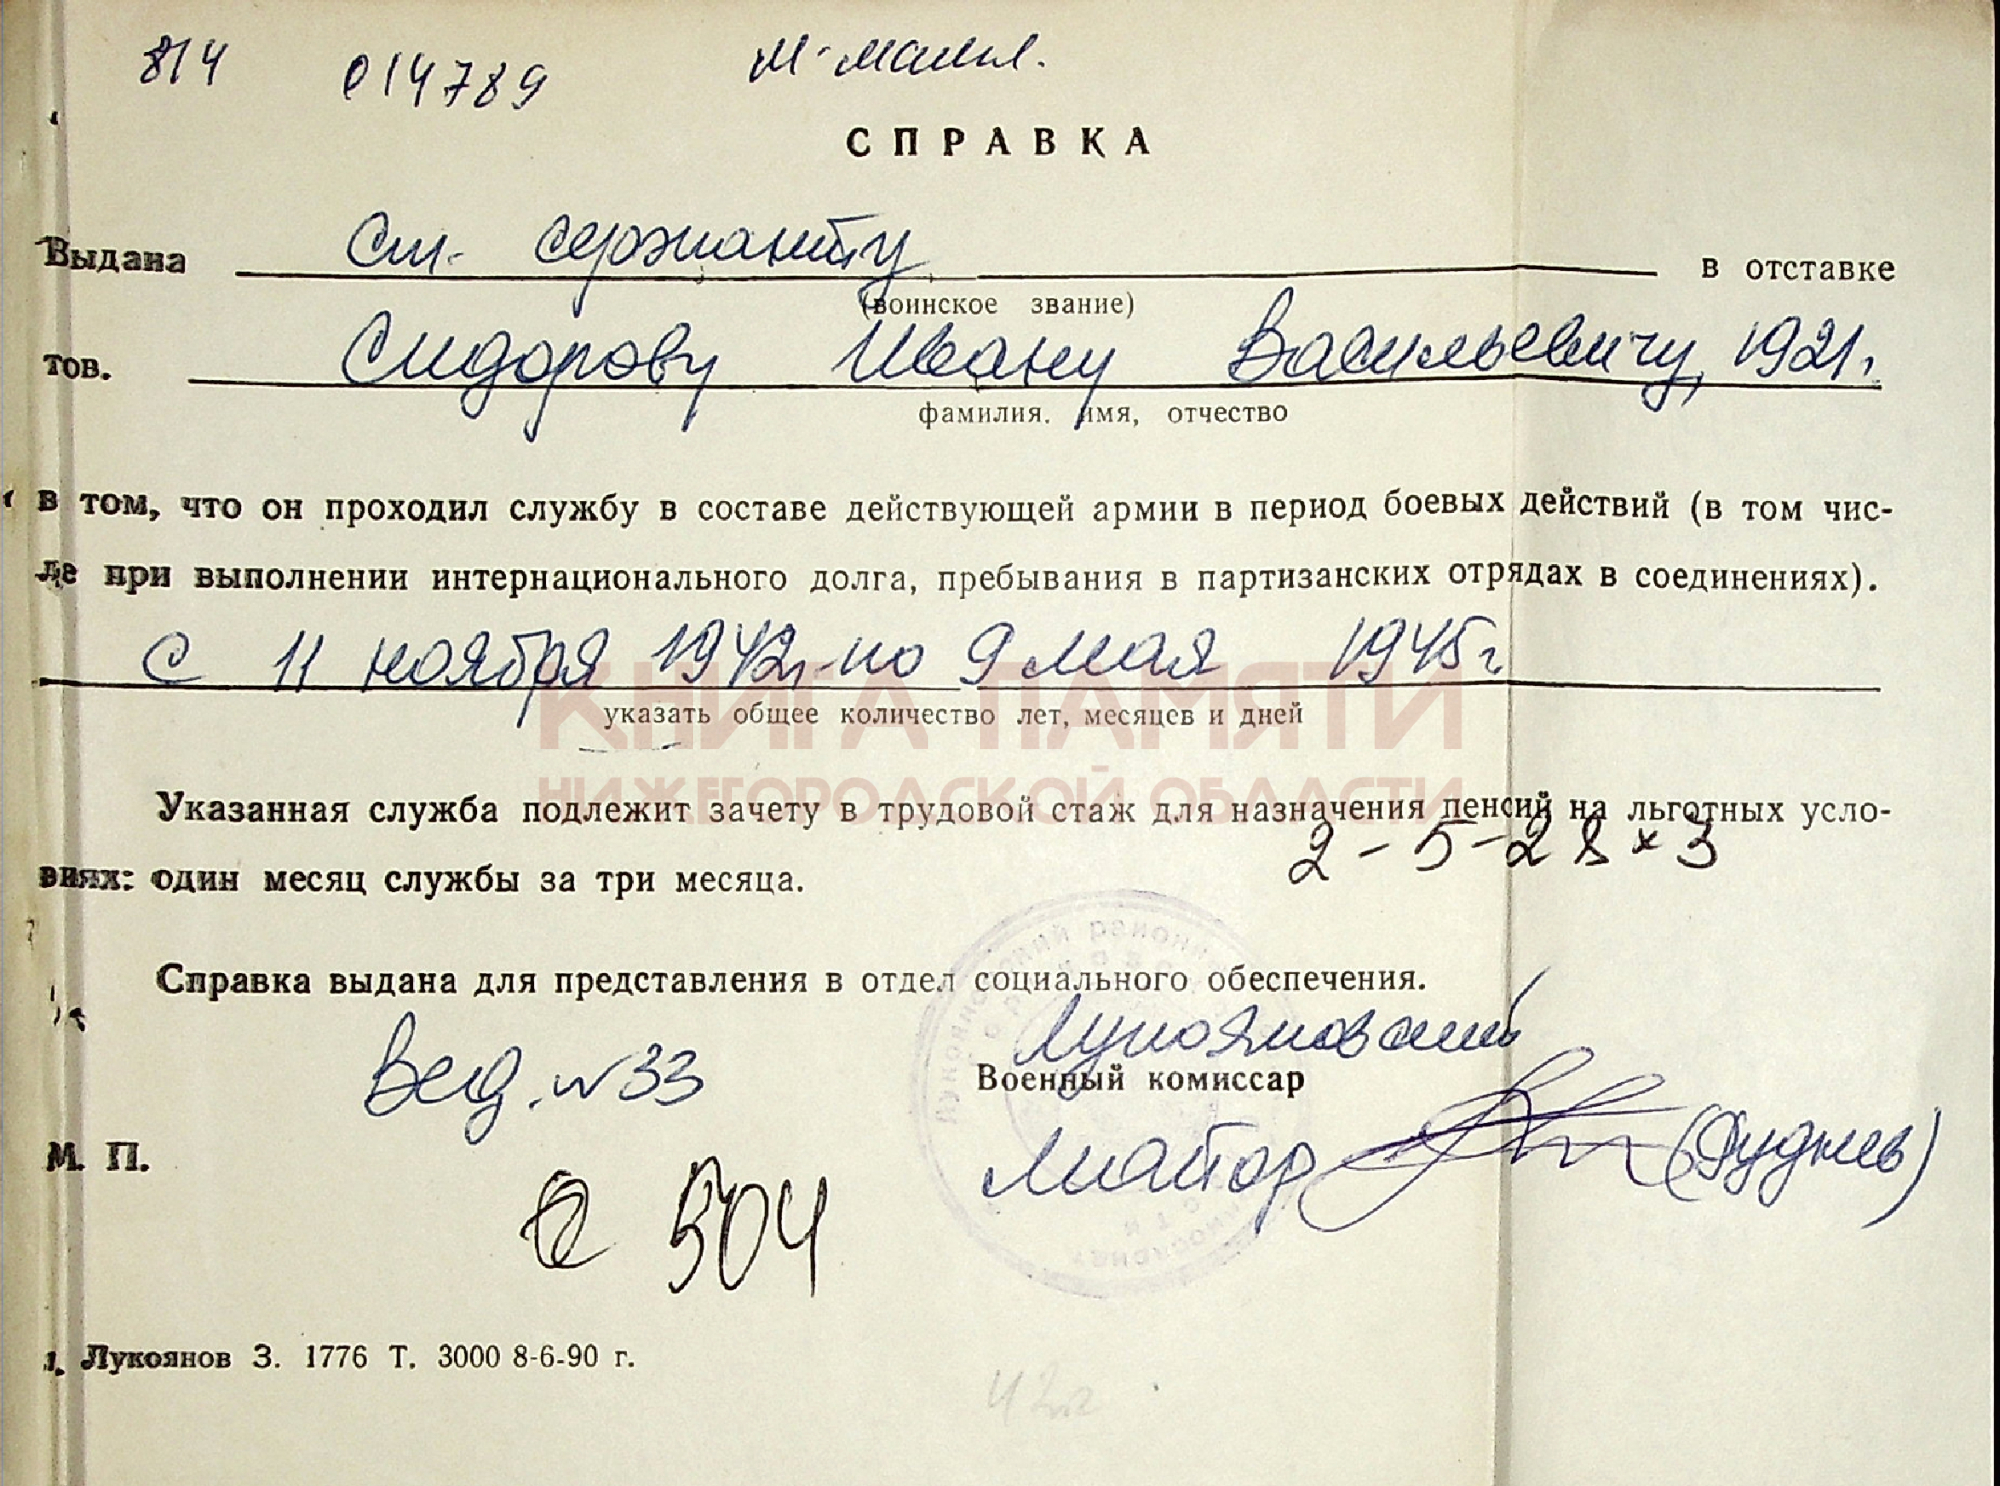 814 014789 М-маил.
СПРАВКА
Выдана Ст. сержанту в отставке
(воинское звание)
тов. Сидорову Ивану Васильевичу, 1921г.
фамилия. имя, отчество
в том, что он проходил службу в составе действующей армии в период боевых действий (в том чис-
ле при выполнении интернационального долга, пребывания в партизанских отрядах в соединениях).
с 11 ноября 1942г. по 9 мая 1945г
КНИГА ПАМЯТИ
указать общее количество лет, месяцев и дней
НИЖЕГОРОДСКОЙ ОБЛАСТИ
Указанная служба подлежит зачету в трудовой стаж для назначения пенсий на льготных усло-
виях: один месяц службы за три месяца.
2-5-28×3
Справка выдана для представления в отдел социального обеспечения.
Лукояновский
Вед. N 33
Военный комиссар
М. П.
майор
504
г. Лукоянов З. 1776 Т. 3000 8-6-90 г.